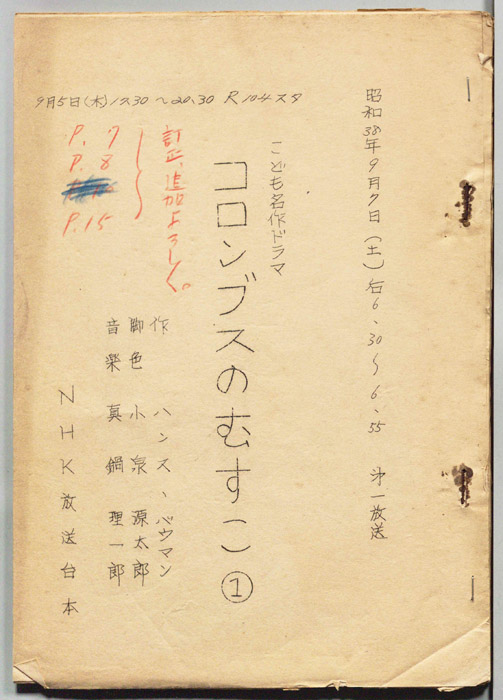 9月5日(木)17.30〜20.30 R104スタ
昭和38年9月7日(土)后6、30〜6、55 才一放送
こども名作ドラマ
コロンブスのむすこ①
訂正、追加よろしく。
P.7
P.8
P.15
作 ハンス、バウマン
脚色 小泉源太郎
音楽 真鍋理一郎
NHK放送台本